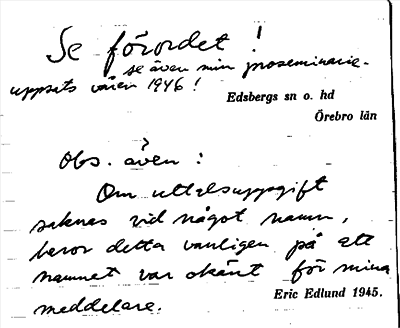 Se förordet!
se även min proseminarie-
uppsats våren 1946!
Edsbergs sn o. hd
Örebro län
Obs. även:
Om uttalsuppgift
saknas vid något namn,
beror detta vanligen på att
namnet var okänt för mina
meddelare.
Eric Edlund 1945.